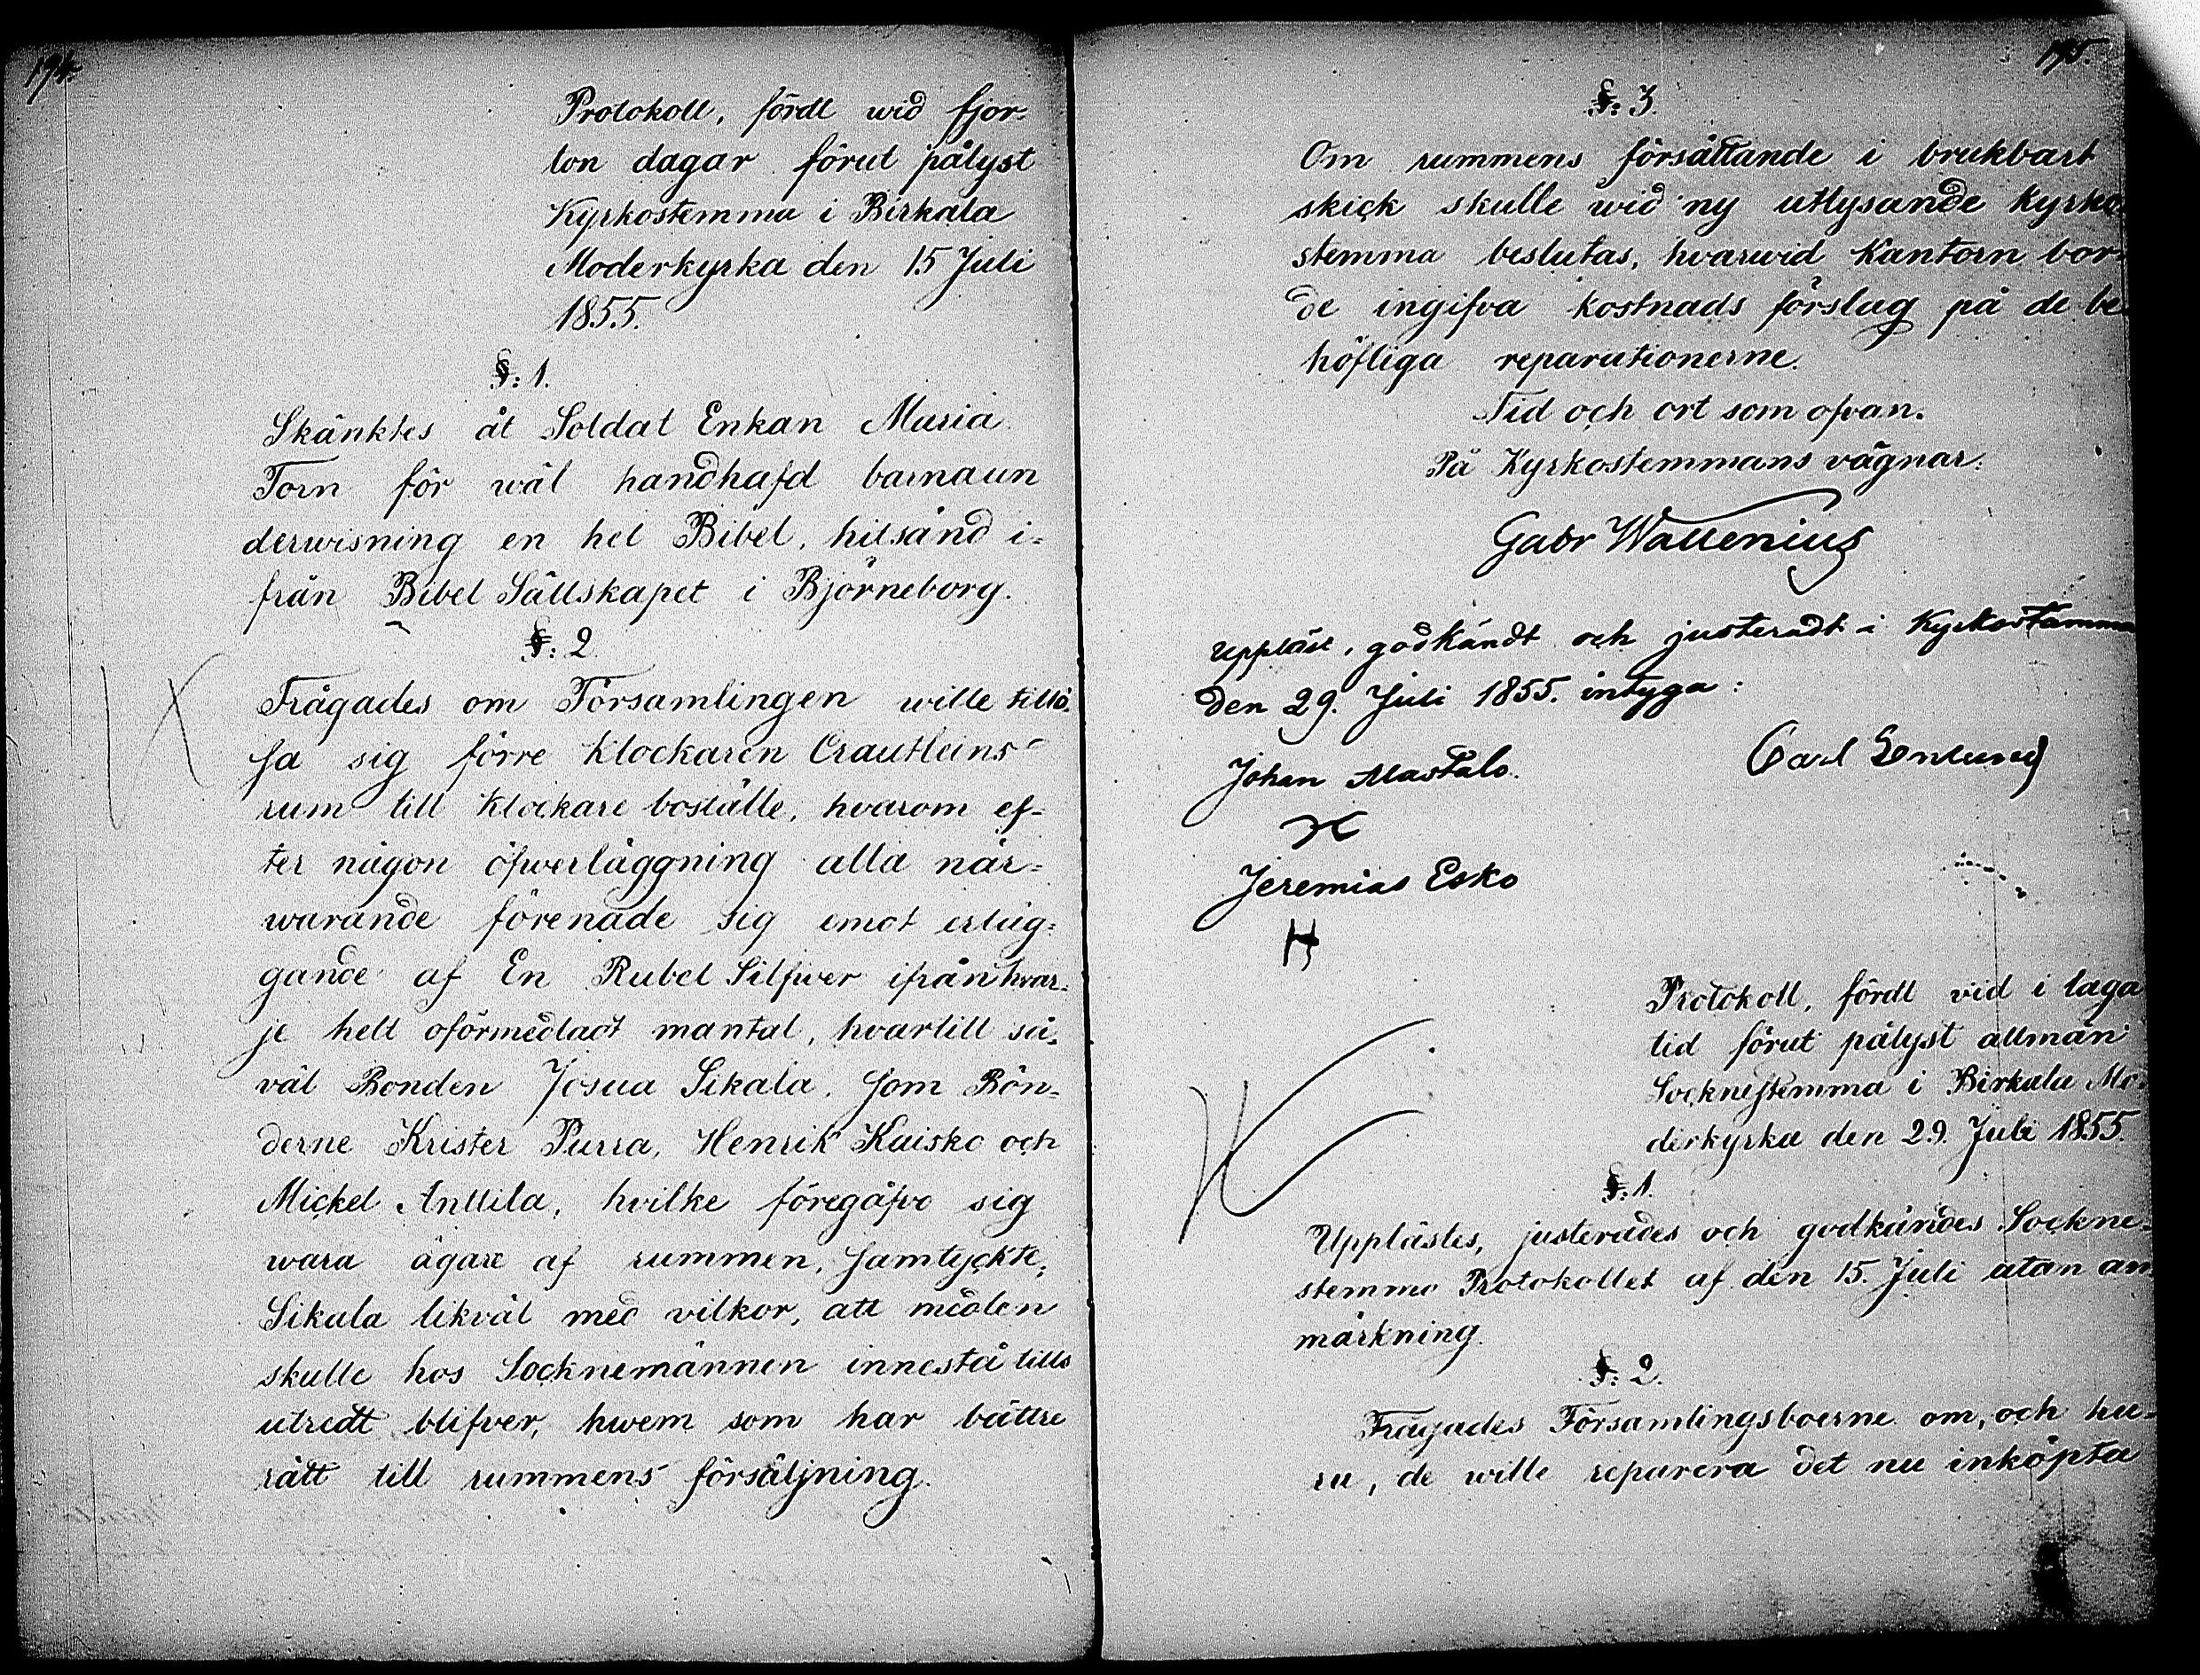 194.
Protokoll, fördt wid fjor-
ton dagar förut pålyst
Kyrkostemma i Birkala
Moderkyrka den 15 Juli
1855.
§: 1.
Skänktes åt Soldat Enkan Maria
Torn för wäl handhafd barnaun
derwisning en hel Bibel, hitsänd i-
från Bibel Sällskapet i Björneborg.
§: 2.
Frågades om Församlingen wille tillö-
sa sig förre Klockaren Crautleins
rum till Klockare boställe, hvarom ef-
ter någon öfwerläggning alla när-
warande förenade sig emot erläg-
gande af En Rubel Silfwer ifrån hvar-
je helt oförmedladt mantal, hvartill så-
väl Bonden Josua Sikala, som Bön-
derne Krister Purra, Henrik Kaisko och
Mickel Anttila, hvilke föregåfvo sig
wara ägare af rummen, samtyckte,
Sikala likväl med vilkor, att medlen
skulle hos Socknemännen innestå tills
utredt blifver, hwem som har bättre
rätt till rummens försäljning.
195.
§: 3.
Om rummens försättande i brukbart
skick skulle wid ny utlysande kyrko-
stemma beslutas, hvarwid Kantorn bor-
de ingifva kostnads förslag på de be-
höfliga reparationerne.
Tid och ort som ofvan.
På Kyrkostemmans vägnar:
Gabr Wallenius
Uppläst, godkändt och justeradt i Kyrkostämma
den 29. Juli 1855. intyga:
Johan Alastalo. Carl Enlund
Jeremias Esko
Protokoll, fördt vid i laga
tid förut pålyst allmän
Socknestemma i Birkala Mo-
derkyrka den 29. Juli 1855.
§: 1.
Upplästes, justerades och godkändes Sockne-
stemmo Protokollet af den 15. Juli utan an-
märkning.
§: 2.
Frågades Församlingsboerne om, och hu-
ru, de wille reparera det nu inköpta